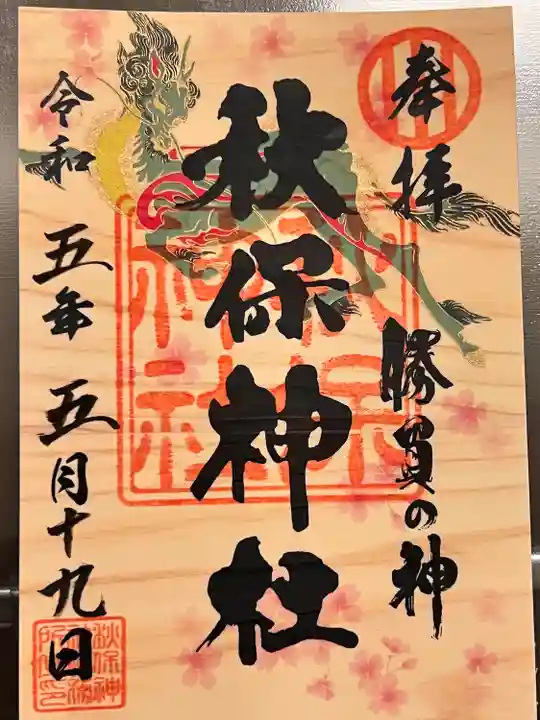 奉拝
勝負の神
秋保神社
令和五年五月十九日
秋保神社